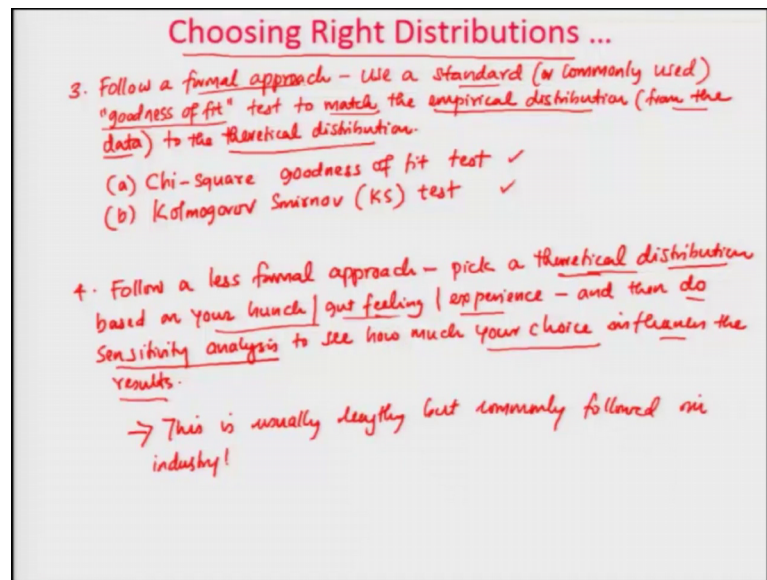 Choosing Right Distributions ...
3. Follow a formal approach – use a standard (or commonly used)
"goodness of fit" test to match the empirical distribution (from the
data) to the theretical distribution.
(a) Chi-Square goodness of fit test ✓
(b) Kolmogorov Smirnov (KS) test ✓
4. Follow a less formal approach – pick a theoretical distribution
based on your hunch | gut feeling | experience – and then do
sensitivity analysis to see how much your choice influences the
results.
→ This is usually lengthy but commonly followed in
industry!